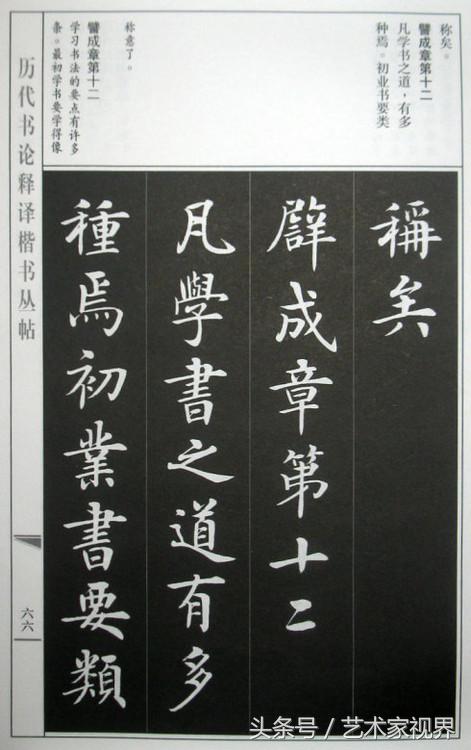 称矣。
譬成章第十二
凡学书之道，有多
种焉。初业书要类
称意了。
譬成章第十二
学习书法的要点有许多
条。最初学书要学得像
稱矣
辟成章第十二
凡學書之道有多
種焉初業書要類
历代书论释译楷书丛帖
六六
头条号/艺术家视界